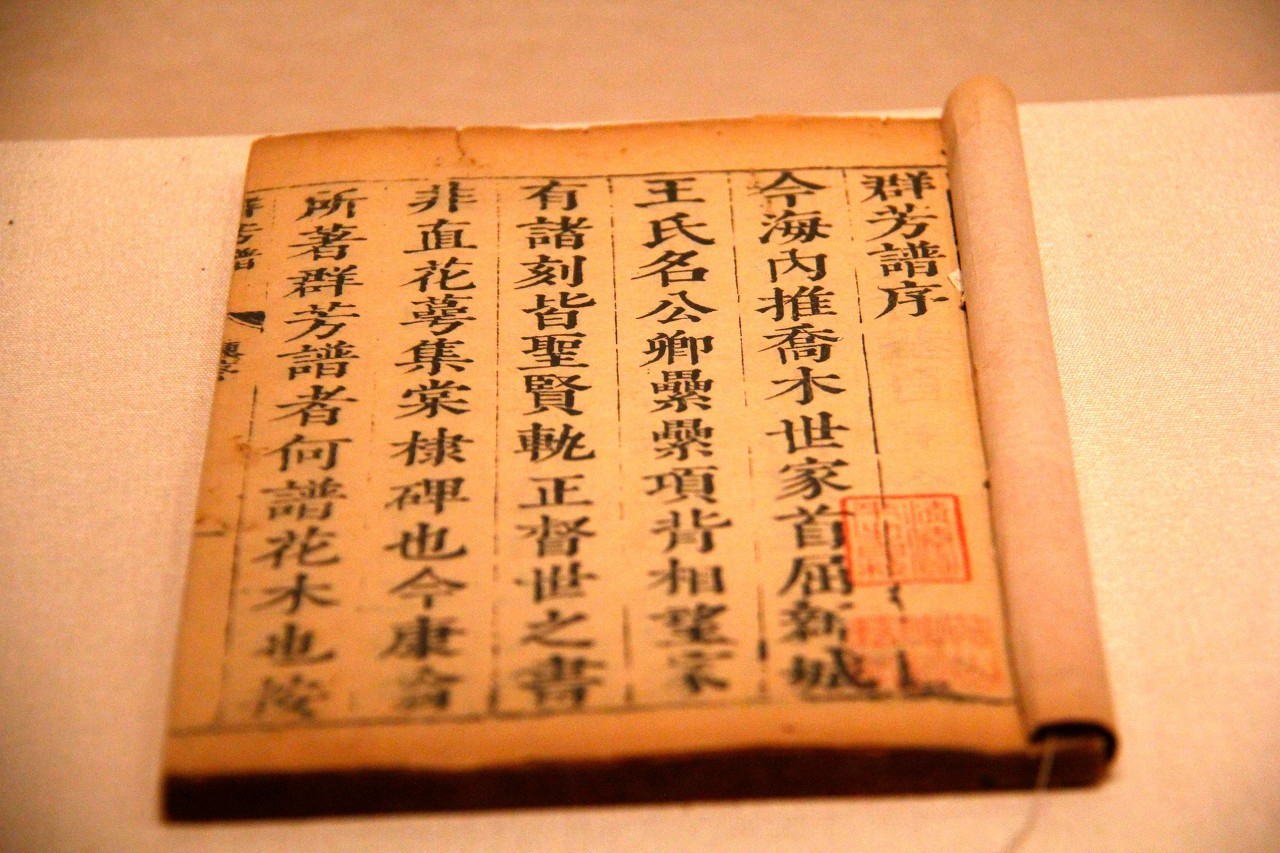 群芳譜序
今海內推喬木世家首屈新城
王氏名公卿纍纍項背相望家
有諸刻皆聖賢軌正督世之書
非直花萼集棠棣碑也今康
所著群芳譜者何譜花木也
群芳譜